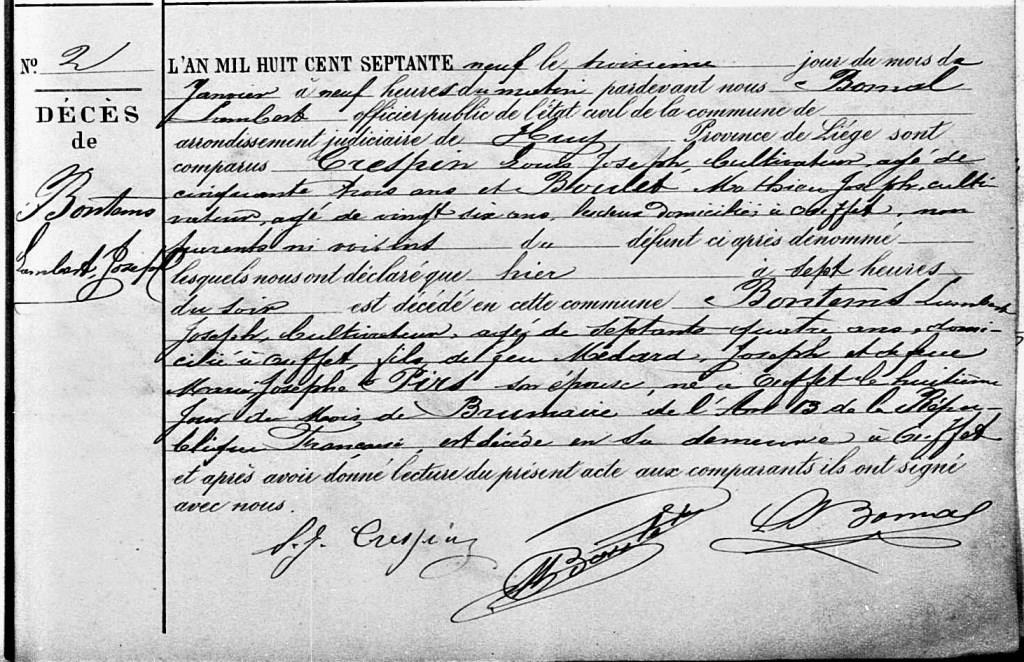 Nº 2
DÉCÈS
de
Bontems
Lambert, Joseph
L'AN MIL HUIT CENT SEPTANTE neuf le troisieme jour du mois de
Janvier à neuf heures du matin pardevant nous Bomal
Lambert officier public de l'état civil de la commune de
arrondissement judiciaire de Huy Province de Liége sont
comparus Crespin Louis Joseph, Cultivateur, agé de
cinquante trois ans et Boulet, Mathieu Joseph, culti
vateur, agé de vingt six ans, les deux domiciliés à Ouffet, non
parents ni voisins du défunt ci après dénommé
lesquels nous ont déclaré que hier à sept heures
du soir est décédé en cette commune Bontems Lambert
Joseph, Cultivateur, agé de septante quatre ans, domi-
cilié à Ouffet, fils de feu Medard, Joseph et de feue
Marie Josephe Pirs son épouse, né à Ouffet le huitième
jour du Mois de Brumaire de l'An 13 de la Répu-
blique Francaise, est décédé en sa demeure à Ouffet
et après avoir donné lecture du présent acte aux comparants ils ont signé
avec nous.
L. J. Crespin
M Boulet
L Bomal